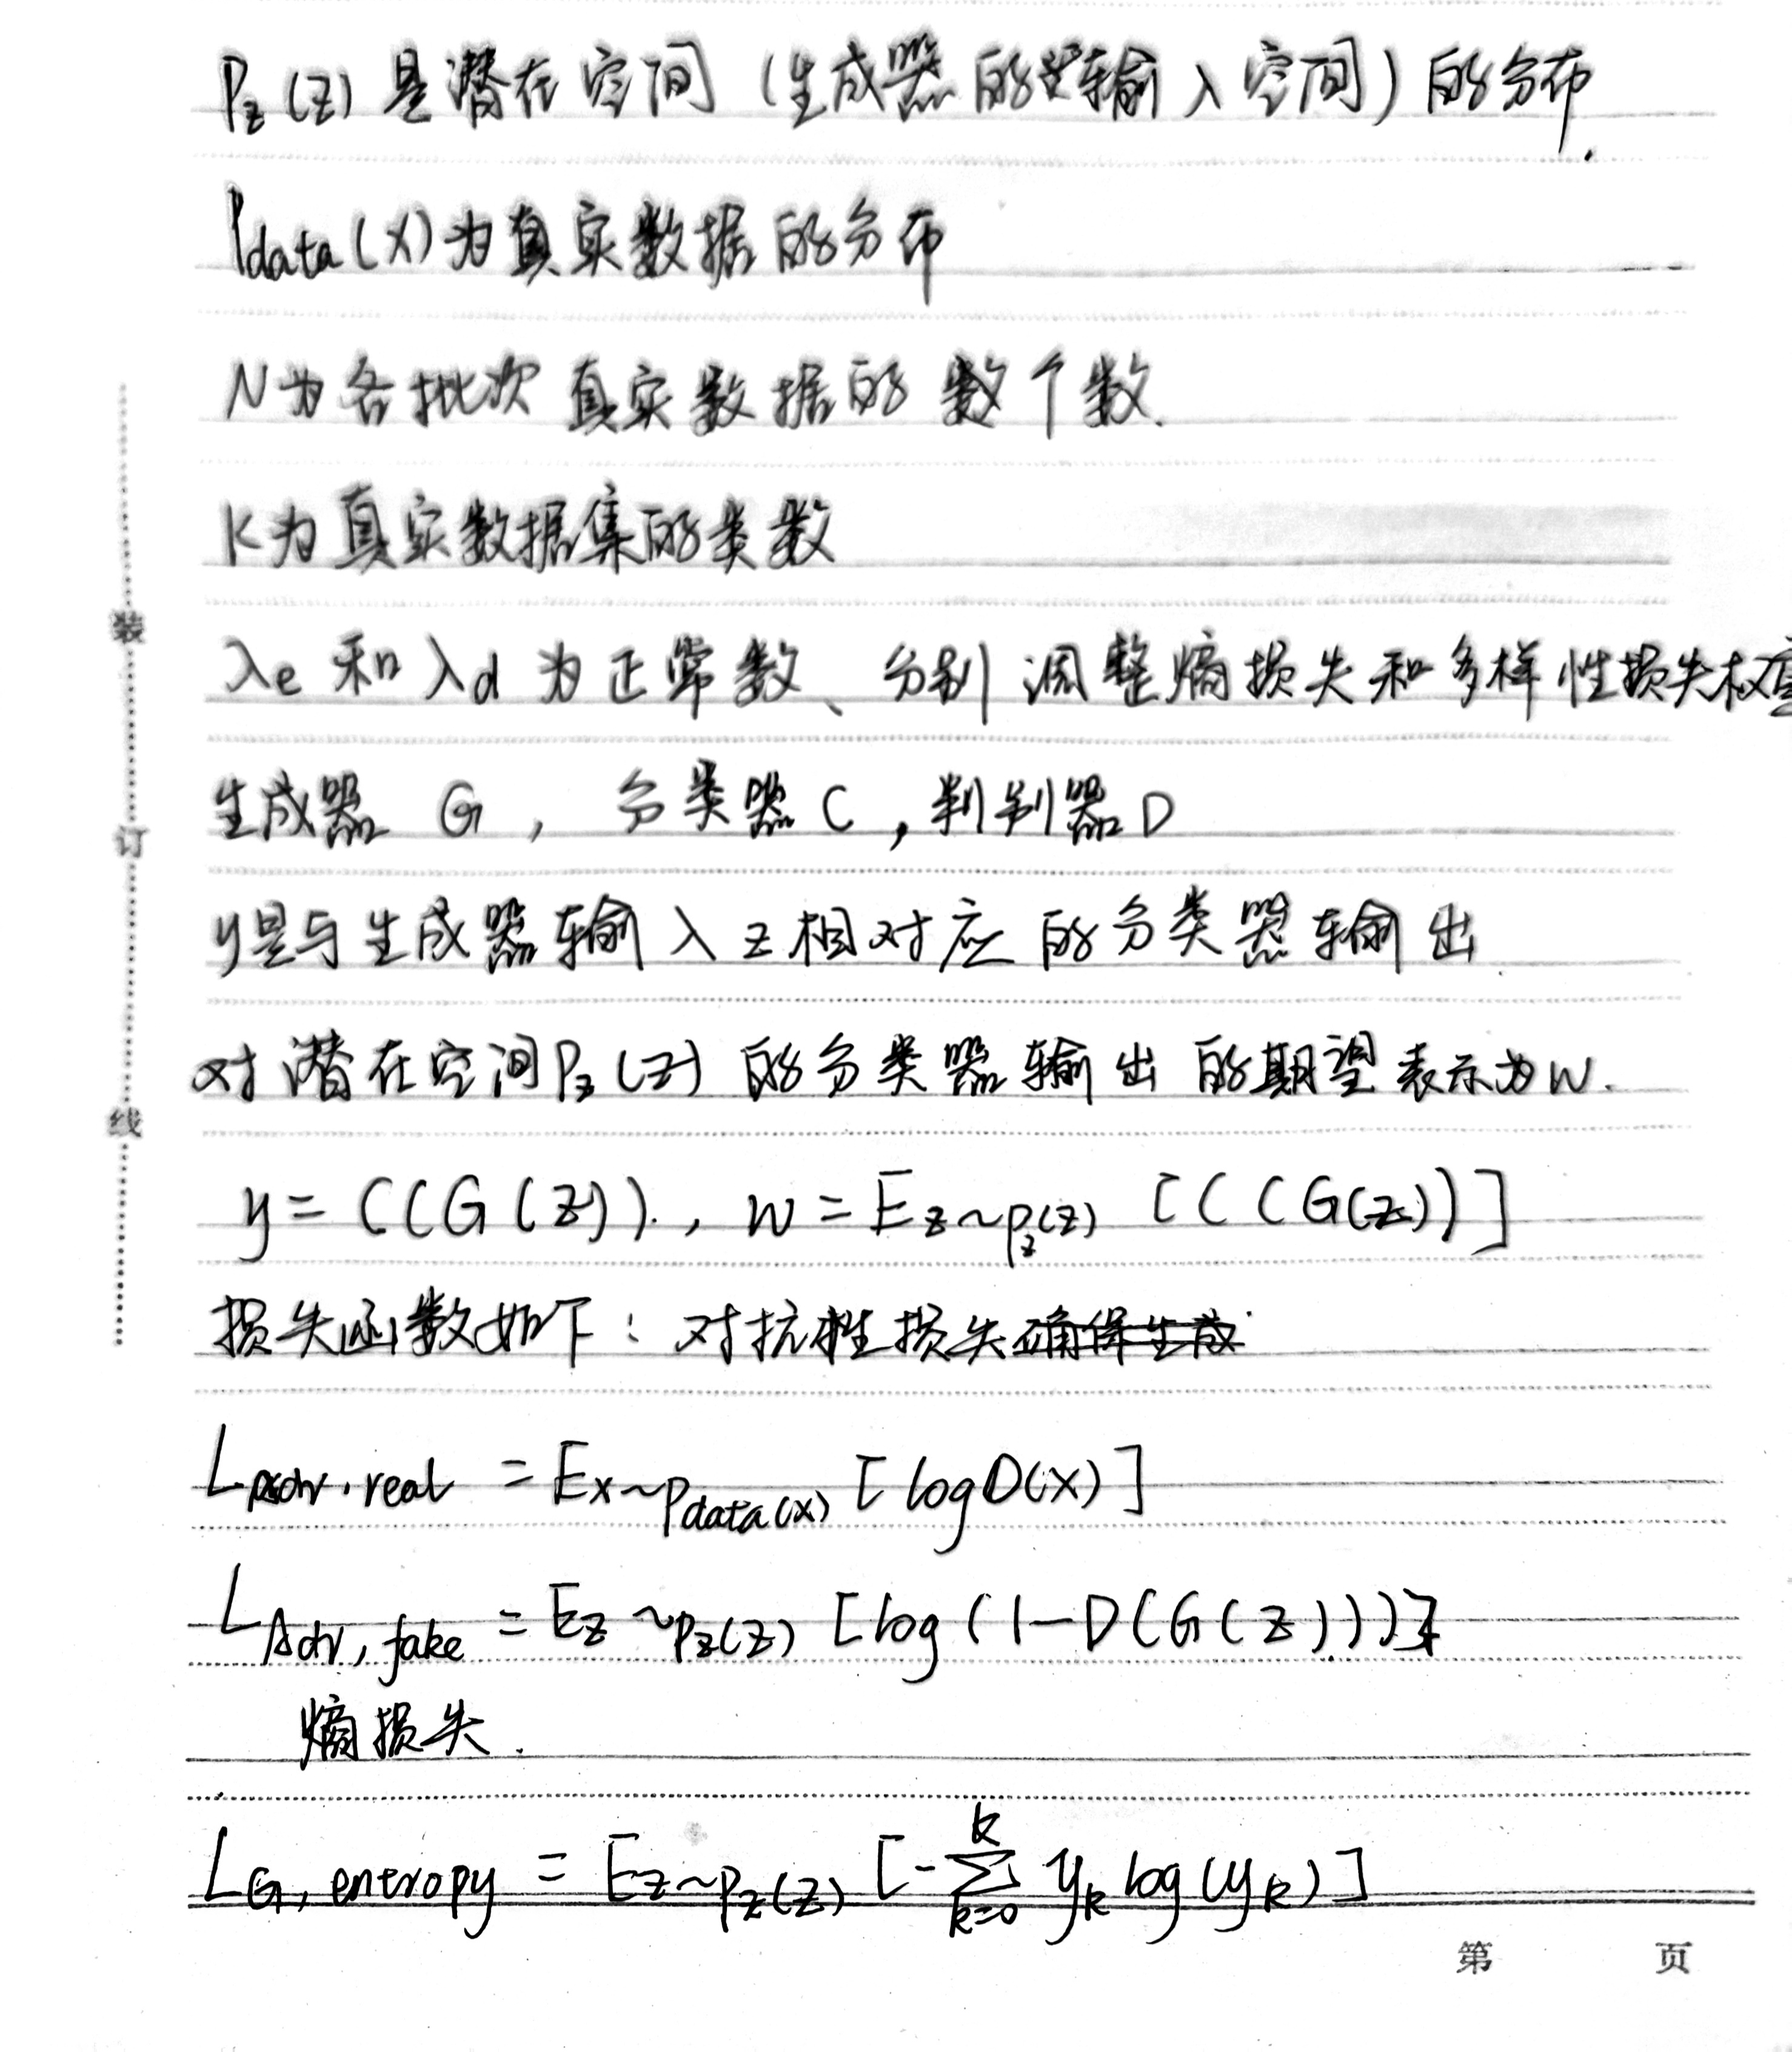 P_z(z) 是潜在空间 (生成器的输入空间) 的分布.
P_data(x) 为真实数据的分布
N为各批次真实数据的数个数.
K为真实数据集的类数
λe 和 λd 为正常数、分别调整熵损失和多样性损失权重
生成器 G , 分类器 C , 判判器 D
y是与生成器输入 z 相对应的分类器输出
对潜在空间 P_z(z) 的分类器输出的期望表示为 w.
y = C(G(z)). , w = E_{z~p_z(z)} [C(G(z))]
损失函数如下: 对抗性损失确保生成
L_{Adv, real} = E_{x~p_data(x)} [log D(x)]
L_{Adv, fake} = E_{z~p_z(z)} [log(1-D(G(z)))]
熵损失.
L_{G, entropy} = E_{z~p_z(z)} [-∑_{k=0}^{k} y_k log(y_k)]
装
订
线
第 页